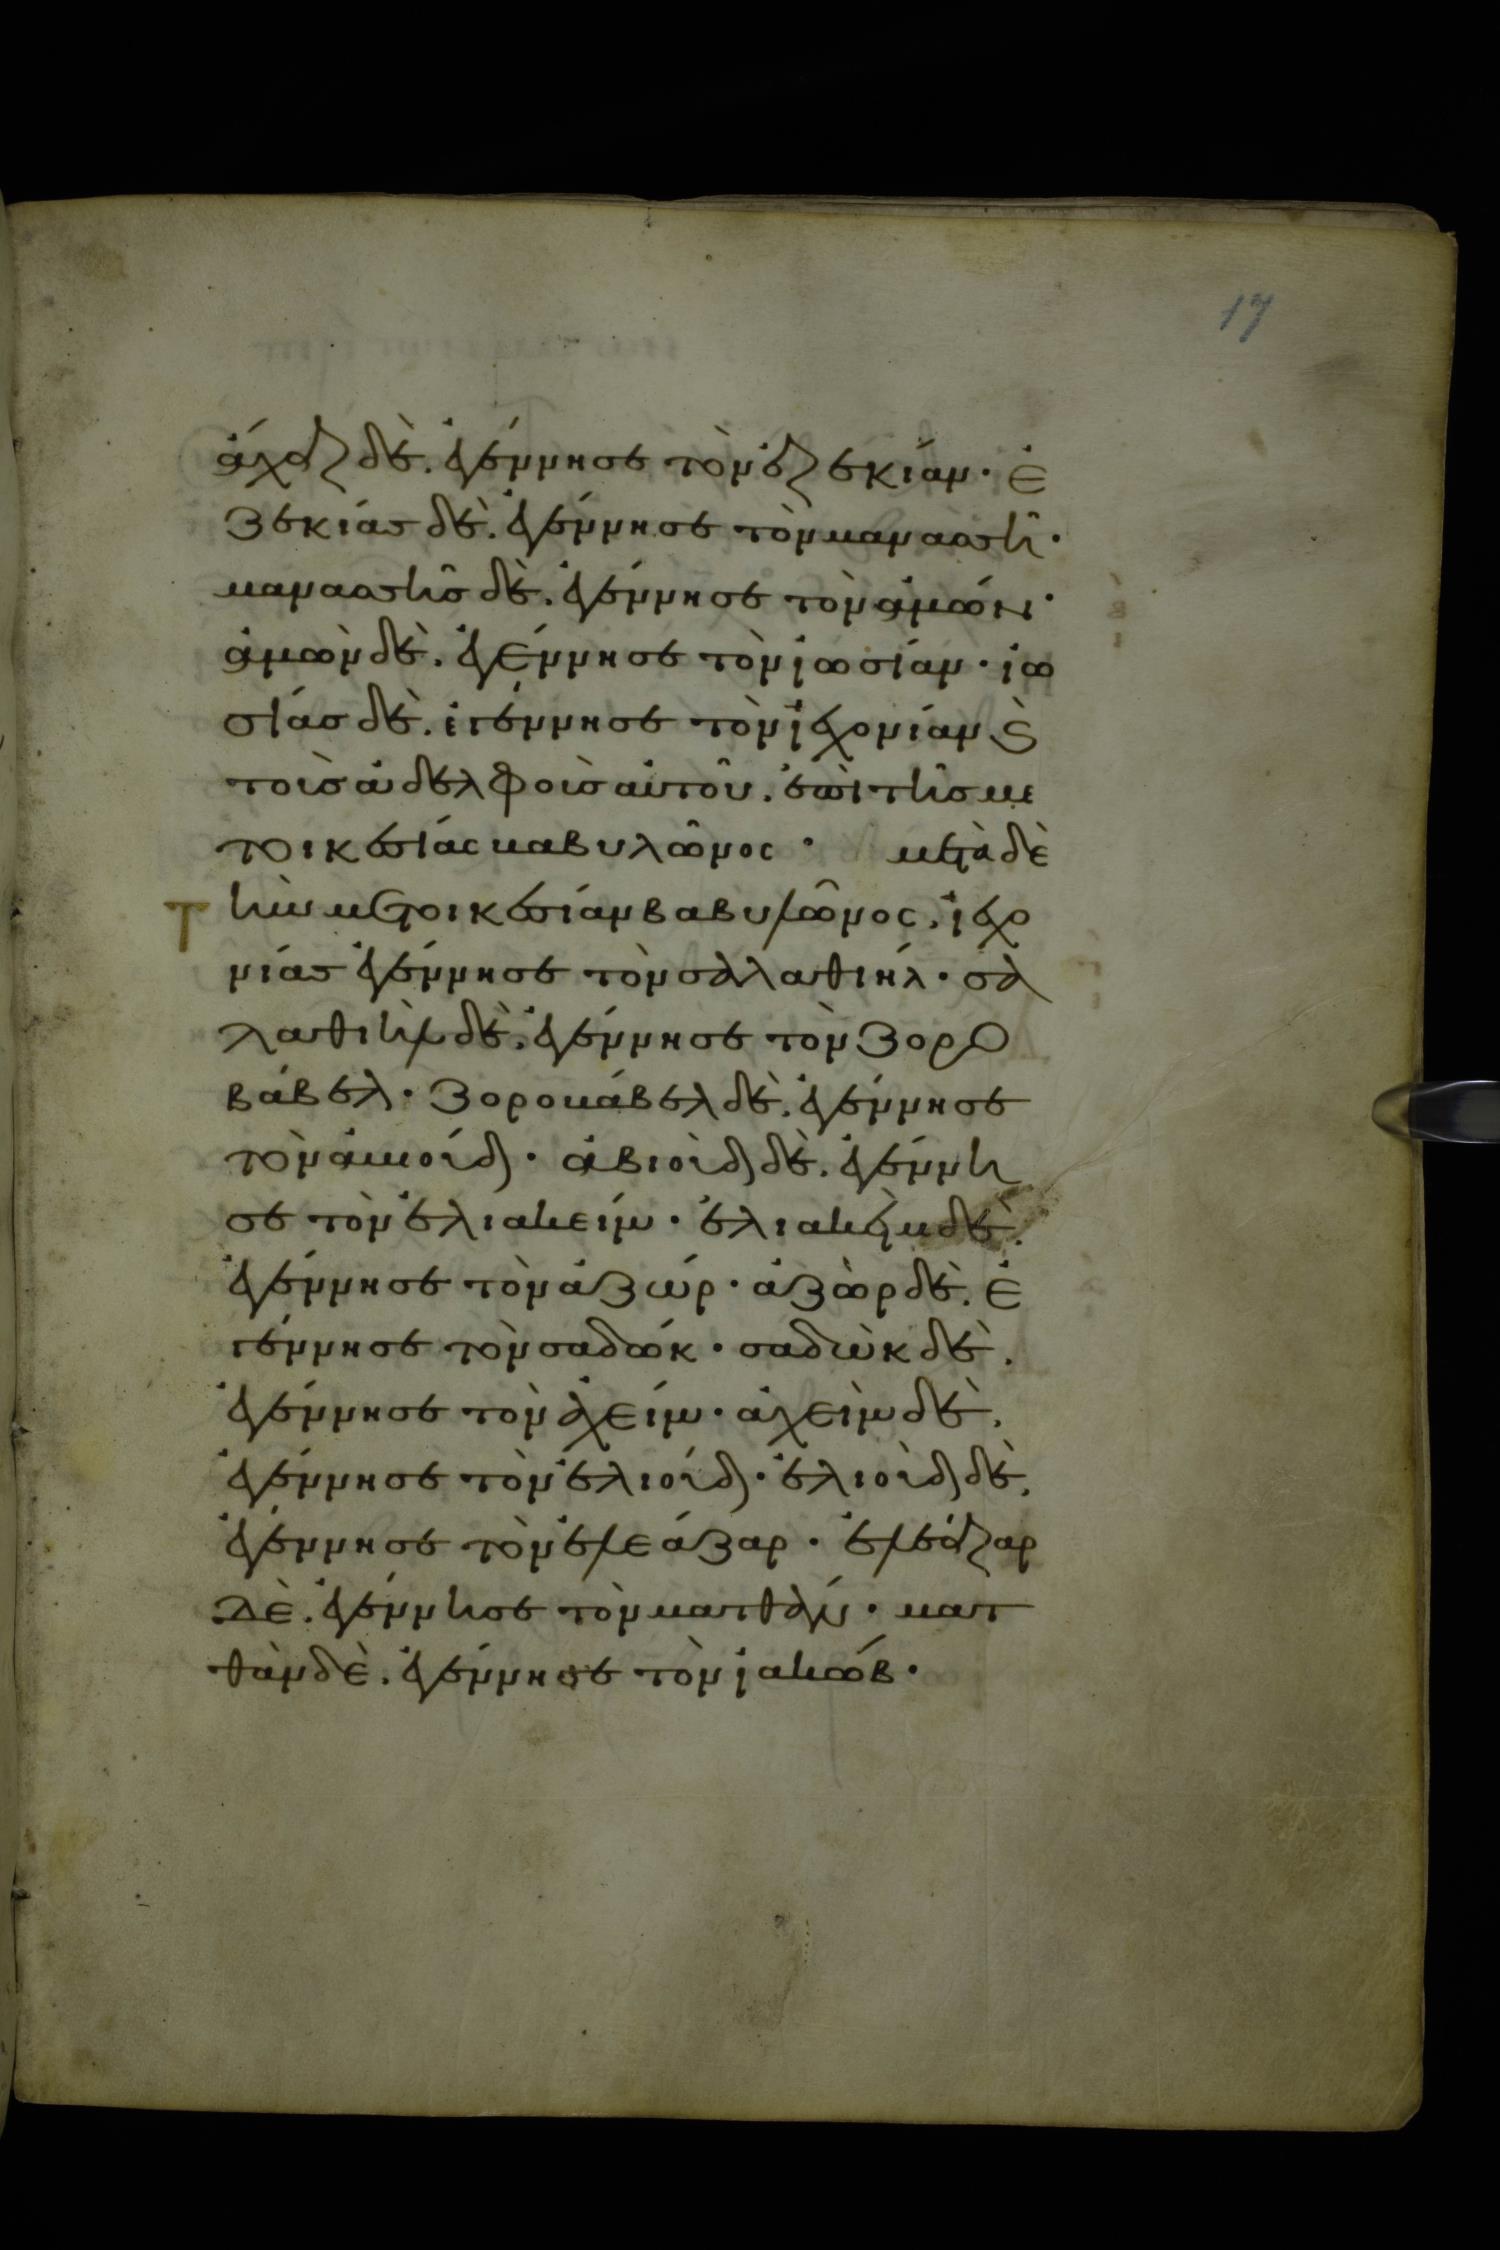 17
ἄχαζ δὲ. ἐγέννησε τὸν ἐζεκίαν· ἐ
ζεκίας δὲ. ἐγέννησε τὸν μανασσῆ·
μανασσῆς δὲ. ἐγέννησε τὸν ἀμών·
ἀμὼν δὲ. ἐγέννησε τὸν ἰωσίαν· ἰω
σίας δὲ. ἐγέννησε τὸν ἰεχονίαν ϗ
τοὺς ἀδελφοὺς αὐτοῦ. ἐπὶ τῆς με
τοικεσίας βαβυλῶνος· μετὰ δὲ
τὴν μετοικεσίαν βαβυλῶνος, ἰεχο
νίας ἐγέννησε τὸν σαλαθιήλ· σα
λαθιὴλ δὲ. ἐγέννησε τὸν ζορο
βάβελ· ζοροβάβελ δὲ. ἐγέννησε
τὸν ἀβιούδ· ἀβιοὺδ δὲ. ἐγέννη
σε τὸν ἐλιακείμ· ἐλιακεὶμ δὲ.
ἐγέννησε τὸν ἀζώρ· ἀζὼρ δὲ. ἐ
γέννησε τὸν σαδώκ· σαδὼκ δὲ.
ἐγέννησε τὸν ἀχείμ· ἀχεὶμ δὲ.
ἐγέννησε τὸν ἐλιούδ· ἐλιοὺδ δὲ.
ἐγέννησε τὸν ἐλεάζαρ· ἐλεάζαρ
δὲ. ἐγέννησε τὸν ματθάν· ματ
θὰν δὲ. ἐγέννησε τὸν ἰακώβ·